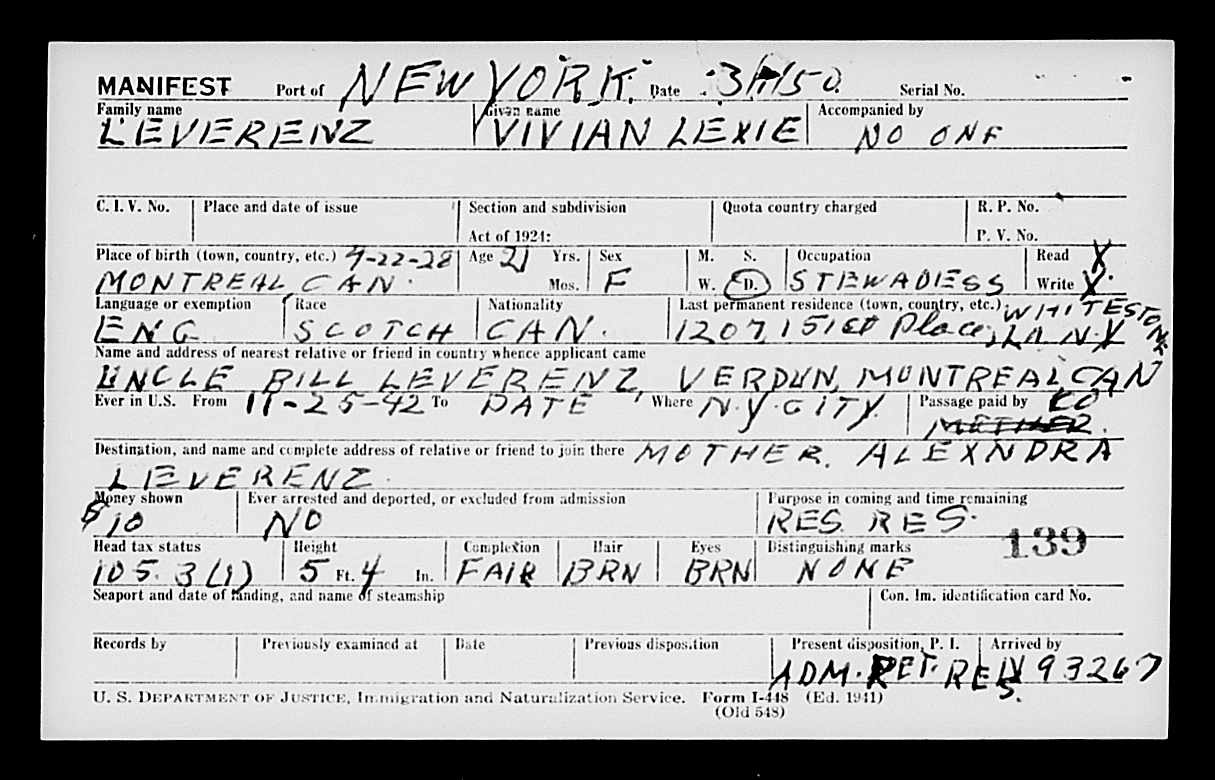 MANIFEST Port of NEW YORK. Date 3/1/50. Serial No.
Family name Given name Accompanied by
LEVERENZ VIVIAN LEXIE NO ONE
C. I. V. No. Place and date of issue Section and subdivision Quota country charged R. P. No.
Act of 1924: P. V. No.
Place of birth (town, country, etc.) 4-22-28 Age 21 Yrs. Sex M. S. Occupation Read X
MONTREAL CAN. Mos. F W. D. STEWADIESS Write X
Language or exemption Race Nationality Last permanent residence (town, country, etc.) WHITESTONE
ENG SCOTCH CAN. 1207, 151st Place, L.I. N.Y
Name and address of nearest relative or friend in country whence applicant came
UNCLE BILL LEVERENZ, VERDUN, MONTREAL, CAN
Ever in U.S. From 11-25-42 To DATE Where N.Y. CITY. Passage paid by CO
MOTHER.
Destination, and name and complete address of relative or friend to join there MOTHER. ALEXNDRA
LEVERENZ.
Money shown Ever arrested and deported, or excluded from admission Purpose in coming and time remaining
$10 NO RES. RES.
139
Head tax status Height Complexion Hair Eyes Distinguishing marks
105.3(1) 5 Ft. 4 In. FAIR BRN BRN NONE
Seaport and date of landing, and name of steamship Con. Im. identification card No.
Records by Previously examined at Date Previous disposition Present disposition, P. I. Arrived by
ADM. RET. RES. N93267
U. S. DEPARTMENT OF JUSTICE, Immigration and Naturalization Service. Form I-448 (Ed. 1941)
(Old 548)